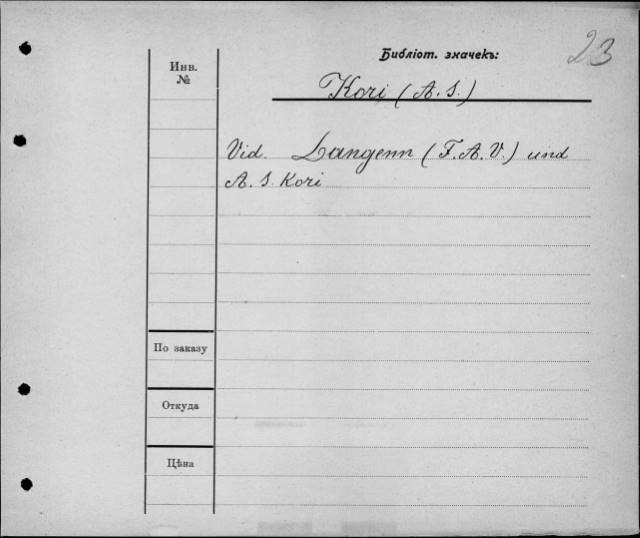 23
Библіот. значекъ:
Инв.
№
Kori (A. S.)
Vid. Langenn (F. A. V.) und
A. S. Kori
По заказу
Откуда
Цѣна